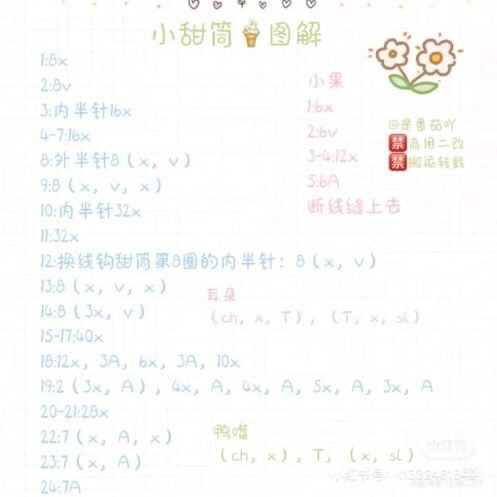 小甜筒🍦图解
1:8x
2:8v
3:内半针16x
4-7:16x
8:外半针8(x, v)
9:8(x, v, x)
10:内半针32x
11:32x
12:换线钩甜筒第8圈的内半针: 8(x, v)
13:8(x, v, x)
14:8(3x, v)
15-17:40x
18:12x, 3A, 6x, 3A, 10x
19:2(3x, A), 4x, A, 4x, A, 5x, A, 3x, A
20-21:28x
22:7(x, A, x)
23:7(x, A)
24:7A
小果
1:6x
2:6v
3-4:12x
5:6A
断线缝上去
@是番茄吖
禁商用二改
禁搬运转载
耳朵
(ch, x, T), (T, x, sl)
鸭嘴
(ch, x), T, (x, sl)
小红书号: